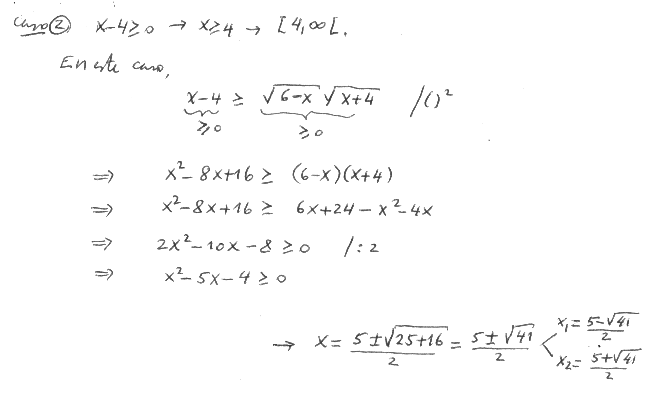 Caso ② x-4≥0 → x≥4 → [4,∞[.
En este caso,
x-4 ≥ √6-x √x+4 /()²
≥0 ≥0
⇒ x²-8x+16 ≥ (6-x)(x+4)
⇒ x²-8x+16 ≥ 6x+24-x²-4x
⇒ 2x²-10x-8≥0 /:2
⇒ x²-5x-4≥0
→ x = (5±√25+16)/2 = (5±√41)/2 < x₁=(5-√41)/2
x₂=(5+√41)/2